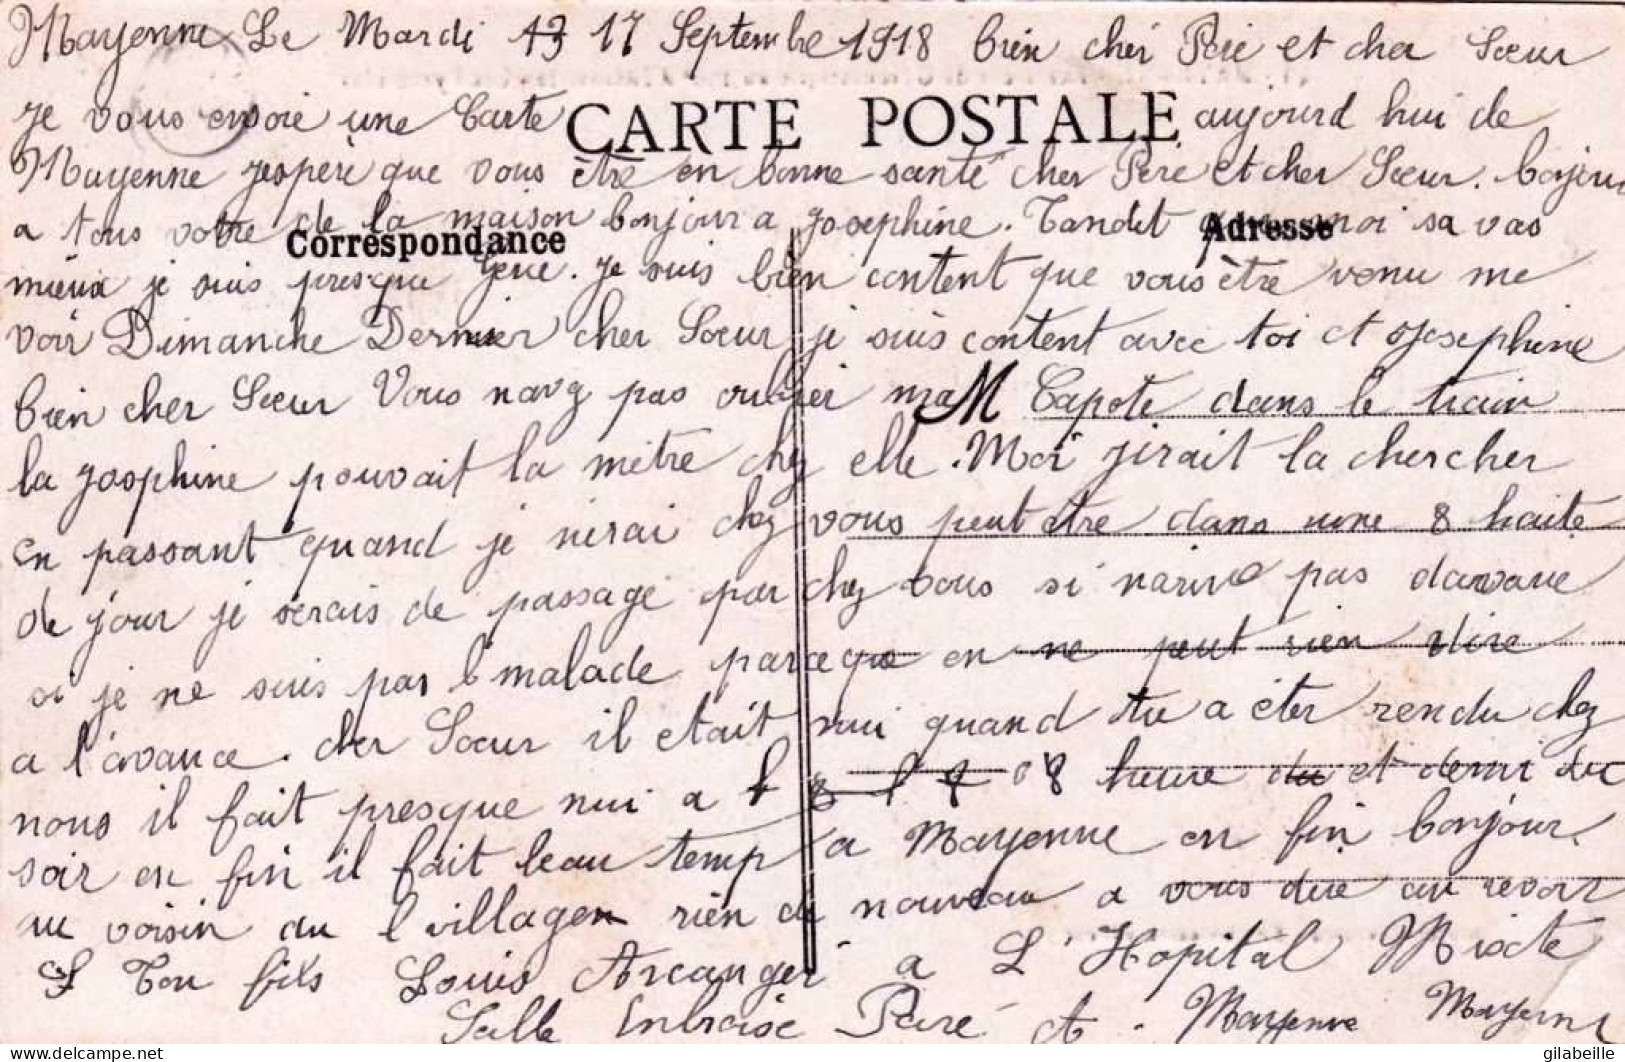 Mayenne Le Mardi 13 17 Septembre 1918 bien cher Pere et cher Sœur
Je vous envoie une Carte aujourd hui de
CARTE POSTALE
Mayenne jespère que vous être en bonne santé cher Père et cher Sœur. bonjour
a tous votre de la maison bonjour a Josephine. Tandit que moi sa vas
Correspondance
Adresse
mieux je suis presque Gerie. Je suis bien content que vous être venu me
voir Dimanche Dernier cher Sœur je suis content avec toi et Josephine
bien cher Sœur Vous navez pas oublier ma Capote dans le train
M
la Josphine pouvait la mètre chez elle. Moi jirait la chercher
en passant quand je nirai chez vous peut être dans une 8 haite
de jour je serais de passage par chez vous si narive pas davane
si je ne suis pas malade parceque en ne peut rien dire
a l'avance. cher Sœur il etait nui quand tu a éter rendu chez
nous il fait presque nui a 8 heure et demi du
soir en fin il fait beau temp a Mayenne en fin bonjour
au voisin du village rien de nouveau a vous dire au revoir
Ton fils Louis Arcanger a L'Hopital Mixte
Salle Enbroise Paré a Mayenne Mayenne
gilabeille